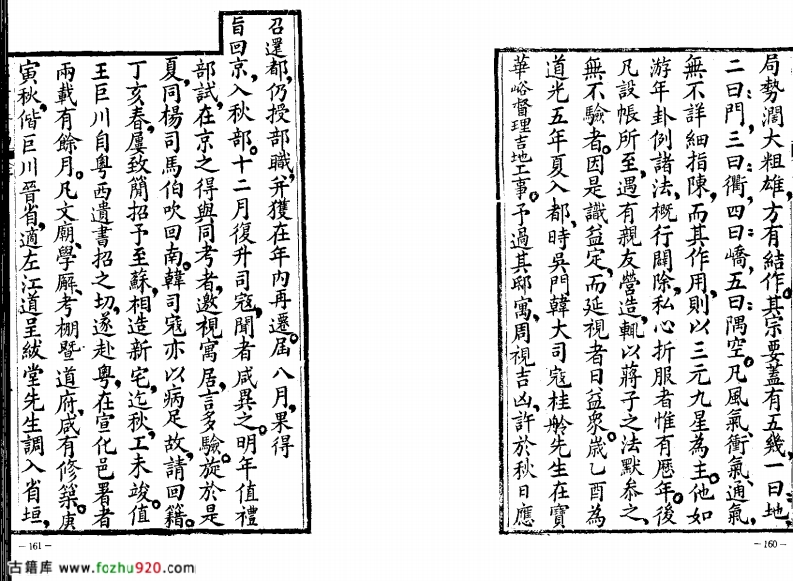 局勢濶大粗雄,方有結作。其宗要蓋有五幾,一曰地,
二曰門,三曰衝,四曰嶠,五曰隅空。凡風氣,衝氣,通氣,
無不詳細指陳,而其作用,則以三元九星為主。他如
游年卦例諸法,概行闢除,私心折服者惟有歷年。後
凡設帳所至,遇有親友營造,輒以蔣子之法默參之,
無不驗者。因是識益定,而延視者日益衆。歲乙酉為
道光五年夏入都,時吳門韓大司寇桂舲先生在寶
華峪督理吉地工事。予過其邸寓,周視吉凶,許於秋日應
— 160 —
召還都,仍授部職,并獲在年內再遷。屆八月,果得
旨回京,入秋部。十二月復升司寇,聞者咸異之。明年值禮
部試,在京之得與同考者,邀視寓居,言多驗。旋於是
夏,同楊司馬伯吹回南。韓司寇亦以病足故,請回籍。
丁亥春,屢致簡招予至蘇,相造新宅。迄秋,工未竣,值
王巨川自粵西遺書招之切,遂赴粵,在宣化邑署者
兩載有餘月。凡文廟,學廨,考棚暨道府,咸有修築。庚
寅秋,偕巨川晉省,適左江道呈紱堂先生調入省垣,
— 161 —
古籍库 www.fozhu920.com